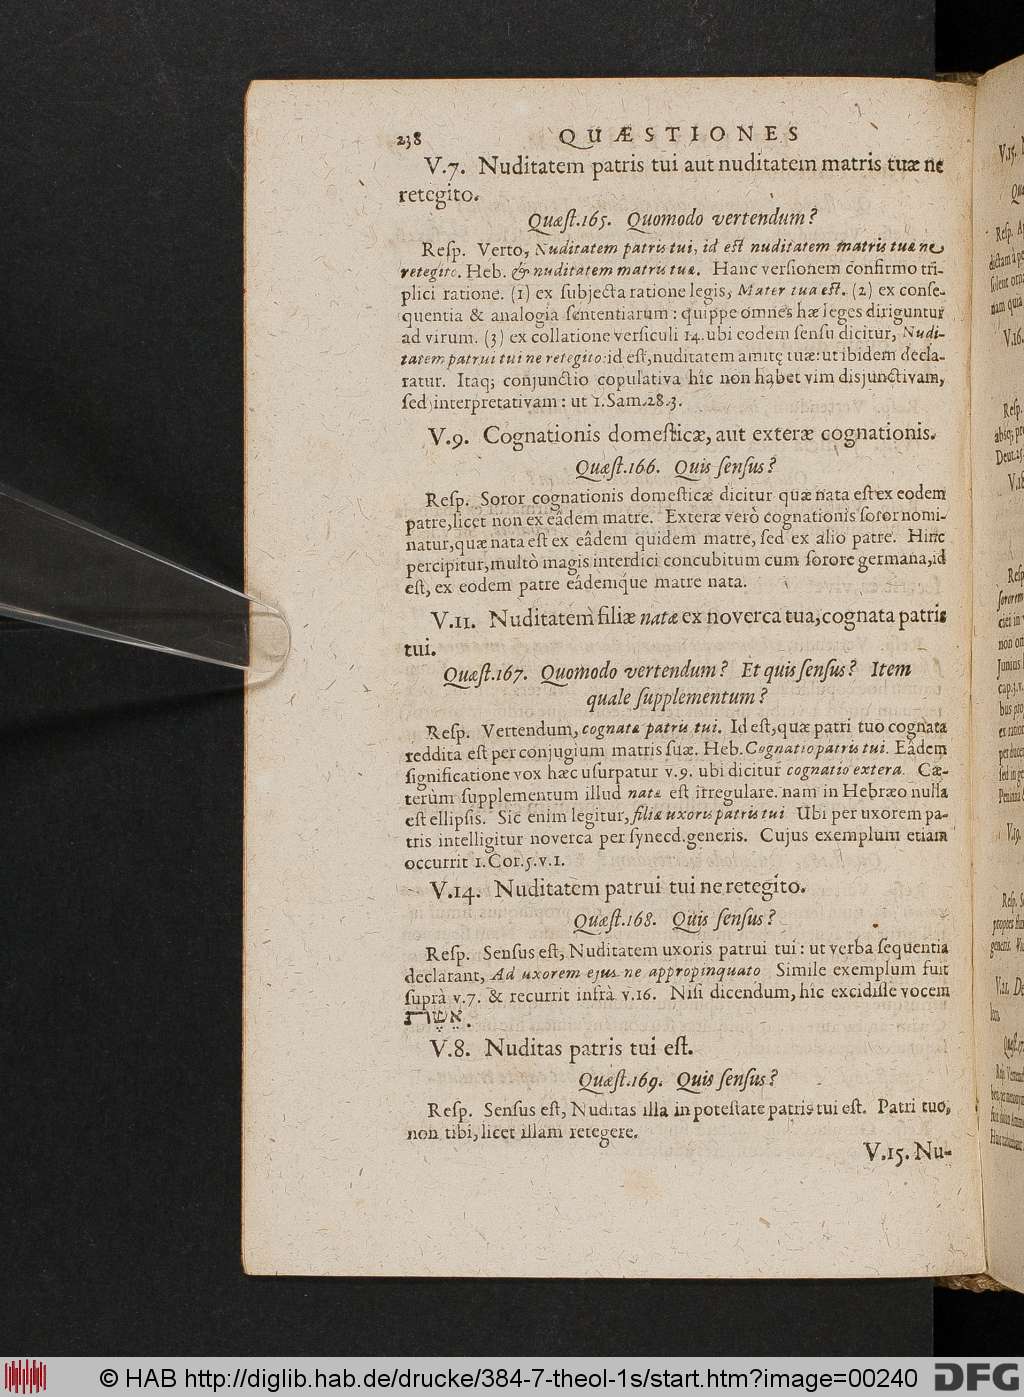 238 QUÆSTIONES
V.7. Nuditatem patris tui aut nuditatem matris tuæ ne
retegito.
Quæſt.165. Quomodo vertendum?
Reſp. Verto, Nuditatem patris tui, id eſt nuditatem matris tuæ ne
retegito. Heb. & nuditatem matris tuæ. Hanc verſionem confirmo tri-
plici ratione. (1) ex ſubjecta ratione legis, Mater tua eſt. (2) ex conſe-
quentia & analogia ſententiarum: quippe omnes hæ leges diriguntur
ad virum. (3) ex collatione verſiculi 14. ubi eodem ſenſu dicitur, Nudi-
tatem patrui tui ne retegito: id eſt, nuditatem amitę tuæ: ut ibidem decla-
ratur. Itaq; conjunctio copulativa hîc non habet vim disjunctivam,
ſed interpretativam: ut 1.Sam.28.3.
V.9. Cognationis domeſticæ, aut exteræ cognationis.
Quæſt.166. Quis ſenſus?
Reſp. Soror cognationis domeſticæ dicitur quæ nata eſt ex eodem
patre, licet non ex eâdem matre. Exteræ verò cognationis ſoror nomi-
natur, quæ nata eſt ex eâdem quidem matre, ſed ex alio patre. Hinc
percipitur, multò magis interdici concubitum cum ſorore germana, id
eſt, ex eodem patre eâdemque matre nata.
V.11. Nuditatem filiæ natæ ex noverca tua, cognata patris
tui.
Quæſt.167. Quomodo vertendum? Et quis ſenſus? Item
quale ſupplementum?
Reſp. Vertendum, cognatæ patris tui. Id eſt, quæ patri tuo cognata
reddita eſt per conjugium matris ſuæ. Heb. Cognatio patris tui. Eâdem
ſignificatione vox hæc uſurpatur v.9. ubi dicitur cognatio extera. Cæ-
terùm ſupplementum illud natæ eſt irregulare. nam in Hebræo nulla
eſt ellipſis. Sic enim legitur, filiæ uxoris patris tui. Ubi per uxorem pa-
tris intelligitur noverca per ſynecd. generis. Cujus exemplum etiam
occurrit 1.Cor.5.v.1.
V.14. Nuditatem patrui tui ne retegito.
Quæſt.168. Quis ſenſus?
Reſp. Senſus eſt, Nuditatem uxoris patrui tui: ut verba ſequentia
declarant, Ad uxorem ejus ne appropinquato. Simile exemplum fuit
ſuprà v.7. & recurrit infrà v.16. Niſi dicendum, hîc excidiſſe vocem
אֵשֶׁת.
V.8. Nuditas patris tui eſt.
Quæſt.169. Quis ſenſus?
Reſp. Senſus eſt, Nuditas illa in poteſtate patris tui eſt. Patri tuo,
non tibi, licet illam retegere.
V.15. Nu-
© HAB http://diglib.hab.de/drucke/384-7-theol-1s/start.htm?image=00240
DFG